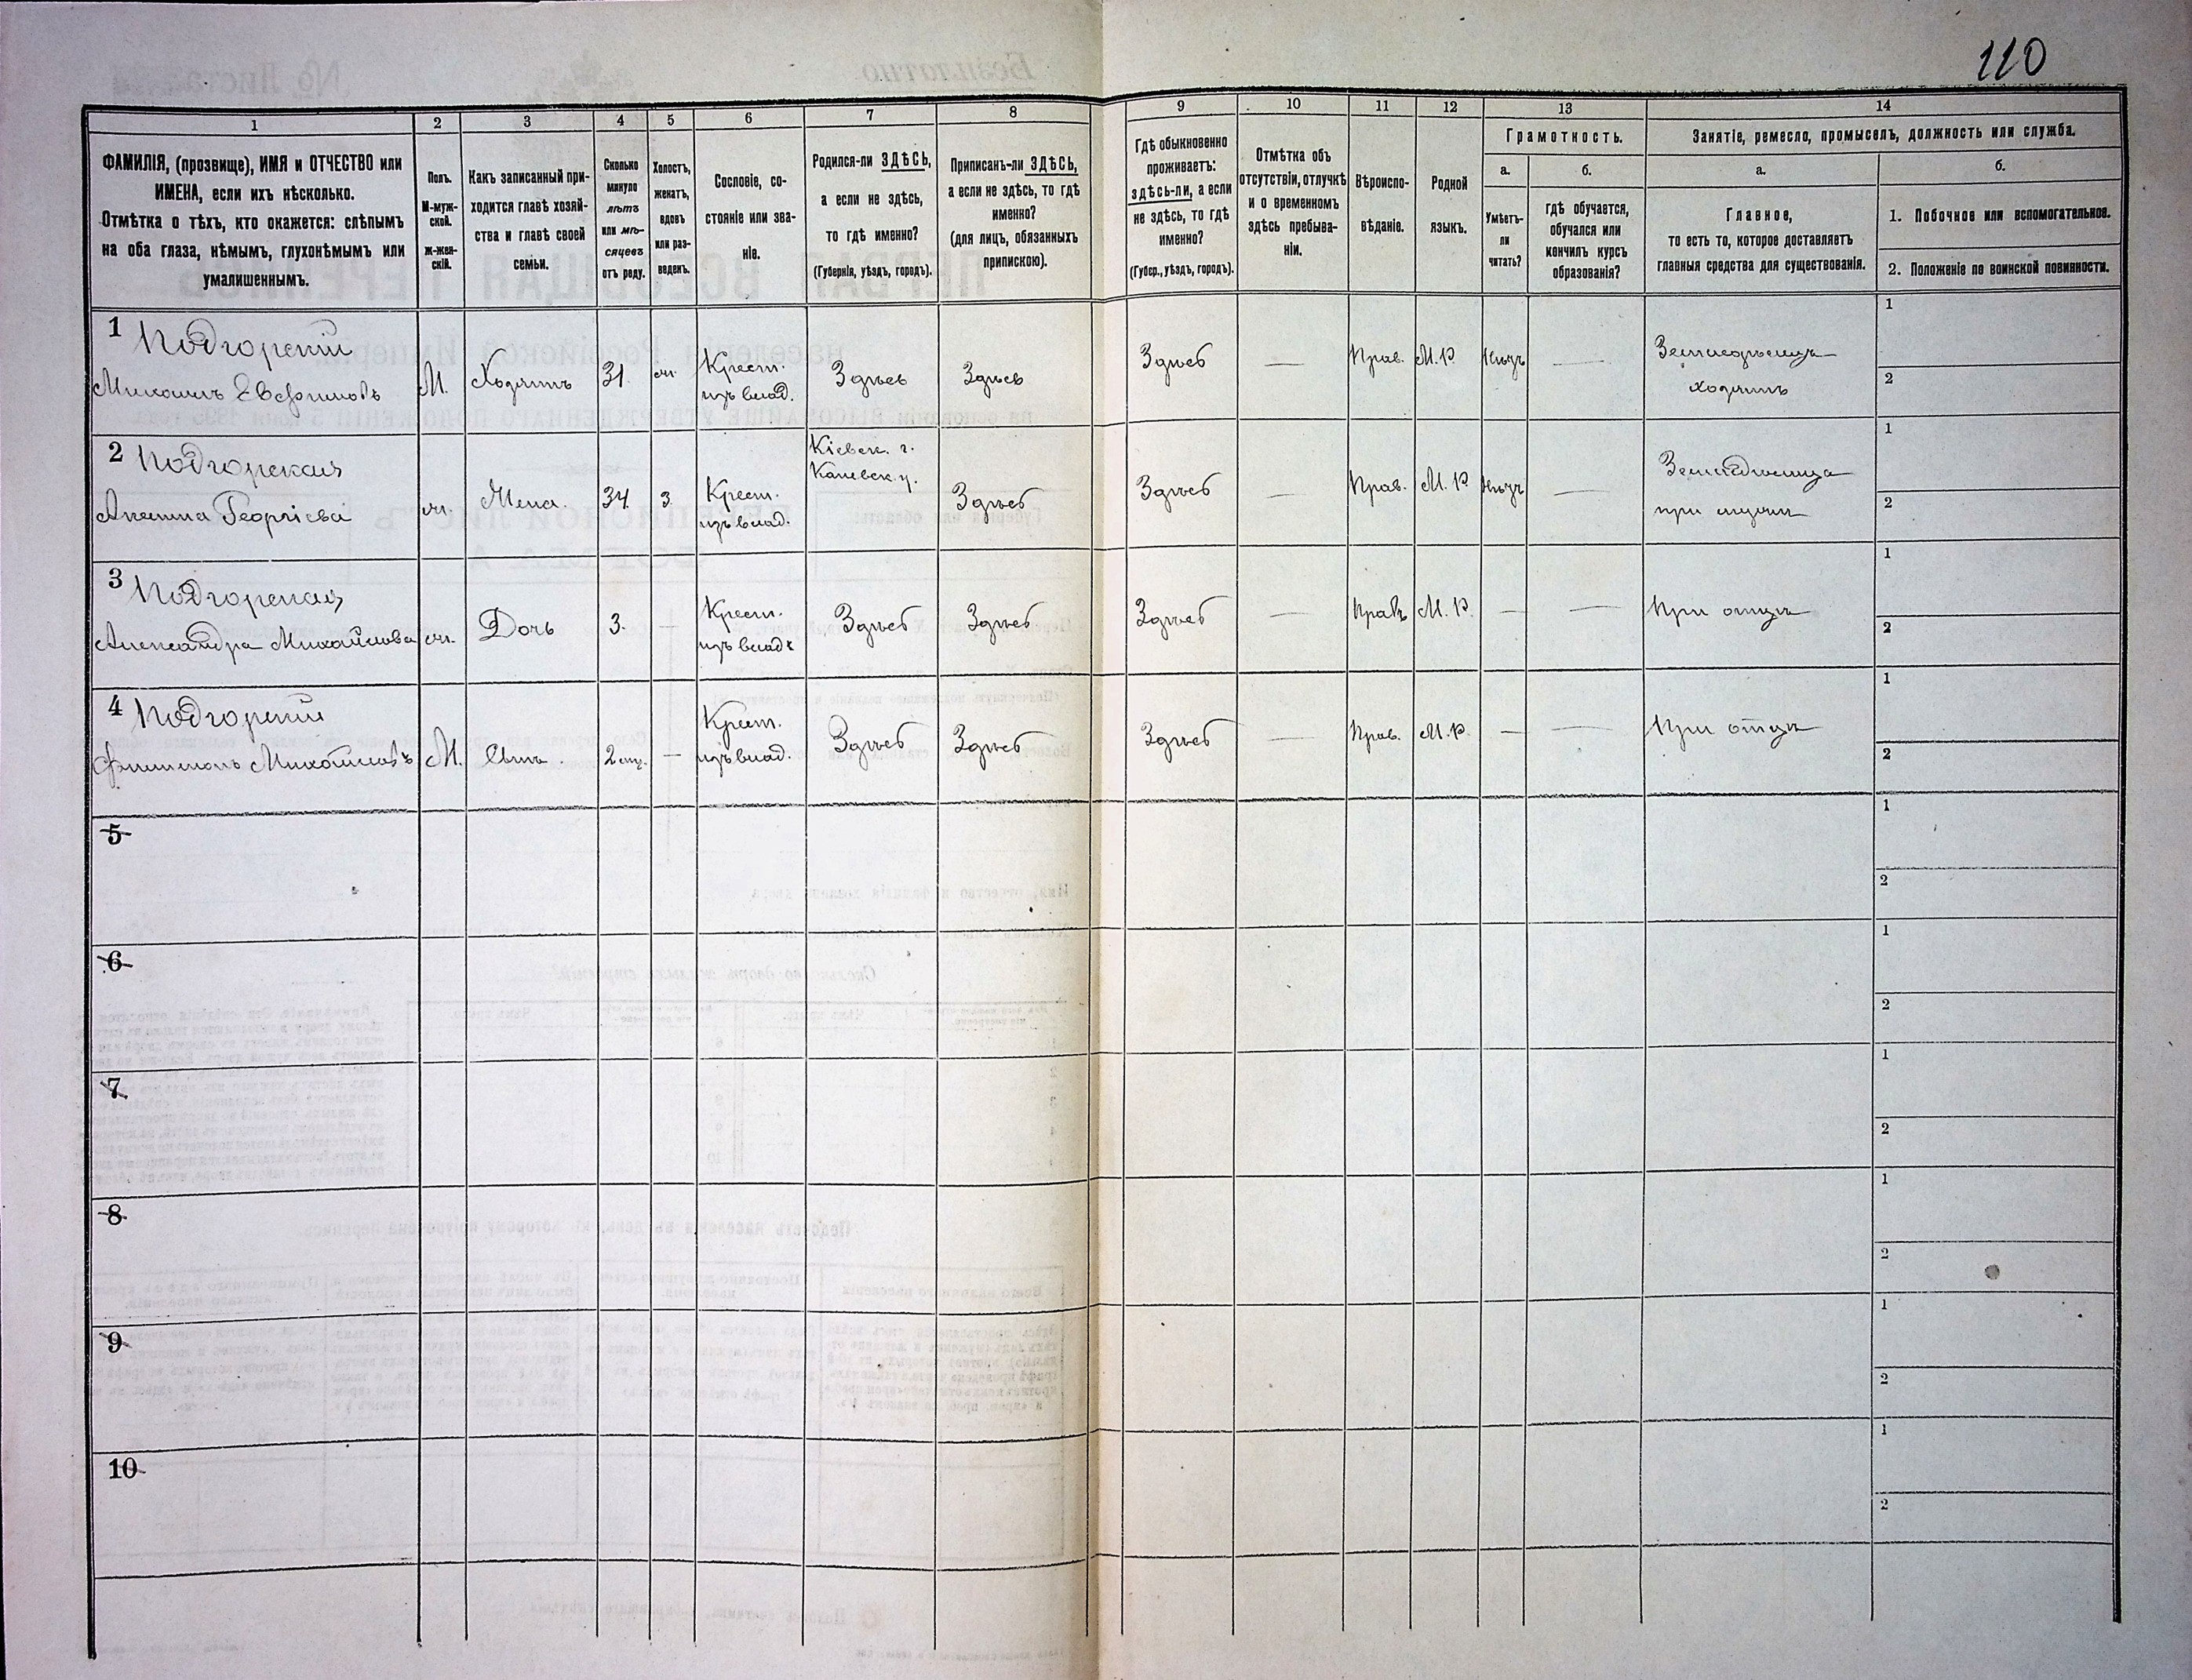 110
1
2
3
4
5
6
7
8
9
10
11
12
13
14
ФАМИЛІЯ, (прозвище), ИМЯ и ОТЧЕСТВО или
ИМЕНА, если ихъ нѣсколько.
Отмѣтка о тѣхъ, кто окажется: слѣпымъ
на оба глаза, нѣмымъ, глухонѣмымъ или
умалишеннымъ.
Полъ.
М-муж-
ской.
ж-жен-
скій.
Какъ записанный при-
ходится главѣ хозяй-
ства и главѣ своей
семьи.
Сколько
минуло
лѣтъ
или мѣ-
сяцевъ
отъ роду.
Холостъ,
женатъ,
вдовъ
или раз-
веденъ.
Сословіе, со-
стояніе или зва-
ніе.
Родился-ли ЗДѢСЬ,
а если не здѣсь,
то гдѣ именно?
(Губернія, уѣздъ, городъ).
Приписанъ-ли ЗДѢСЬ,
а если не здѣсь, то гдѣ
именно?
(для лицъ, обязанныхъ
припискою).
Гдѣ обыкновенно
проживаетъ:
здѣсь-ли, а если
не здѣсь, то гдѣ
именно?
(Губер., уѣздъ, городъ).
Отмѣтка объ
отсутствіи, отлучкѣ
и о временномъ
здѣсь пребыва-
ніи.
Вѣроиспо-
вѣданіе.
Родной
языкъ.
Грамотность.
а.
Умѣетъ-
ли
читать?
б.
гдѣ обучается,
обучался или
кончилъ курсъ
образованія?
Занятіе, ремесло, промыселъ, должность или служба.
а.
Главное,
то есть то, которое доставляетъ
главныя средства для существованія.
б.
1. Побочное или вспомогательное.
2. Положеніе по воинской повинности.
1 Подгорскій
Михаилъ Евфимовъ
М.
Хозяинъ
31.
ж.
Крест.
изъ влад.
Здѣсь
Здѣсь
Здѣсь
—
Прав.
М.Р.
Нѣтъ
—
Земледѣлецъ
хозяинъ
1
2
2 Подгорская
Георгіева
ж.
Жена.
34.
з.
Крест.
изъ влад.
Кіевск. г.
Каневск. у.
Здѣсь
Здѣсь
—
Прав.
М. Р.
Нѣтъ
—
Земледѣлица
при мужѣ
1
2
3 Подгорская
Александра Михайлова
ж.
Дочь
3.
—
Крест.
изъ влад.
Здѣсь
Здѣсь
Здѣсь
—
Прав.
М. Р.
—
—
При отцѣ
1
2
4 Подгорскій
Филимонъ Михайловъ
М.
Сынъ.
2 мц.
—
Крест.
изъ влад.
Здѣсь
Здѣсь
Здѣсь
—
Прав.
М.Р.
—
—
При отцѣ
1
2
5
1
2
6
1
2
7
1
2
8
1
2
9
1
2
10
1
2